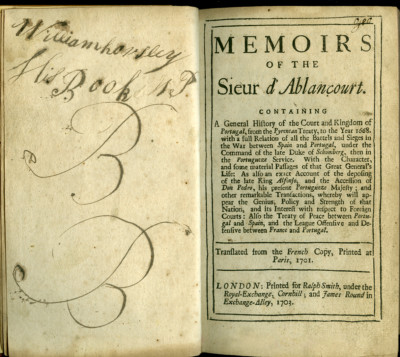 Williamhorsley
His Book
MEMOIRS
OF THE
Sieur d'Ablancourt.
CONTAINING
A General History of the Court and Kingdom of
Portugal, from the Pyrenean Treaty, to the Year 1668.
with a full Relation of all the Battels and Sieges in
the War between Spain and Portugal, under the
Command of the late Duke of Schomberg, then in
the Portuguese Service. With the Character,
and some material Passages of that Great General's
Life: As also an exact Account of the deposing
of the late King Alfonso, and the Accession of
Don Pedro, his present Portuguese Majesty; and
other remarkable Transactions, whereby will ap-
pear the Genius, Policy and Strength of that
Nation, and its Interest with respect to Foreign
Courts: Also the Treaty of Peace between Portu-
gal and Spain, and the League Offensive and De-
fensive between France and Portugal.
Translated from the French Copy, Printed at
Paris, 1701.
LONDON: Printed for Ralph Smith, under the
Royal-Exchange, Cornhill; and James Round in
Exchange-Alley, 1703.